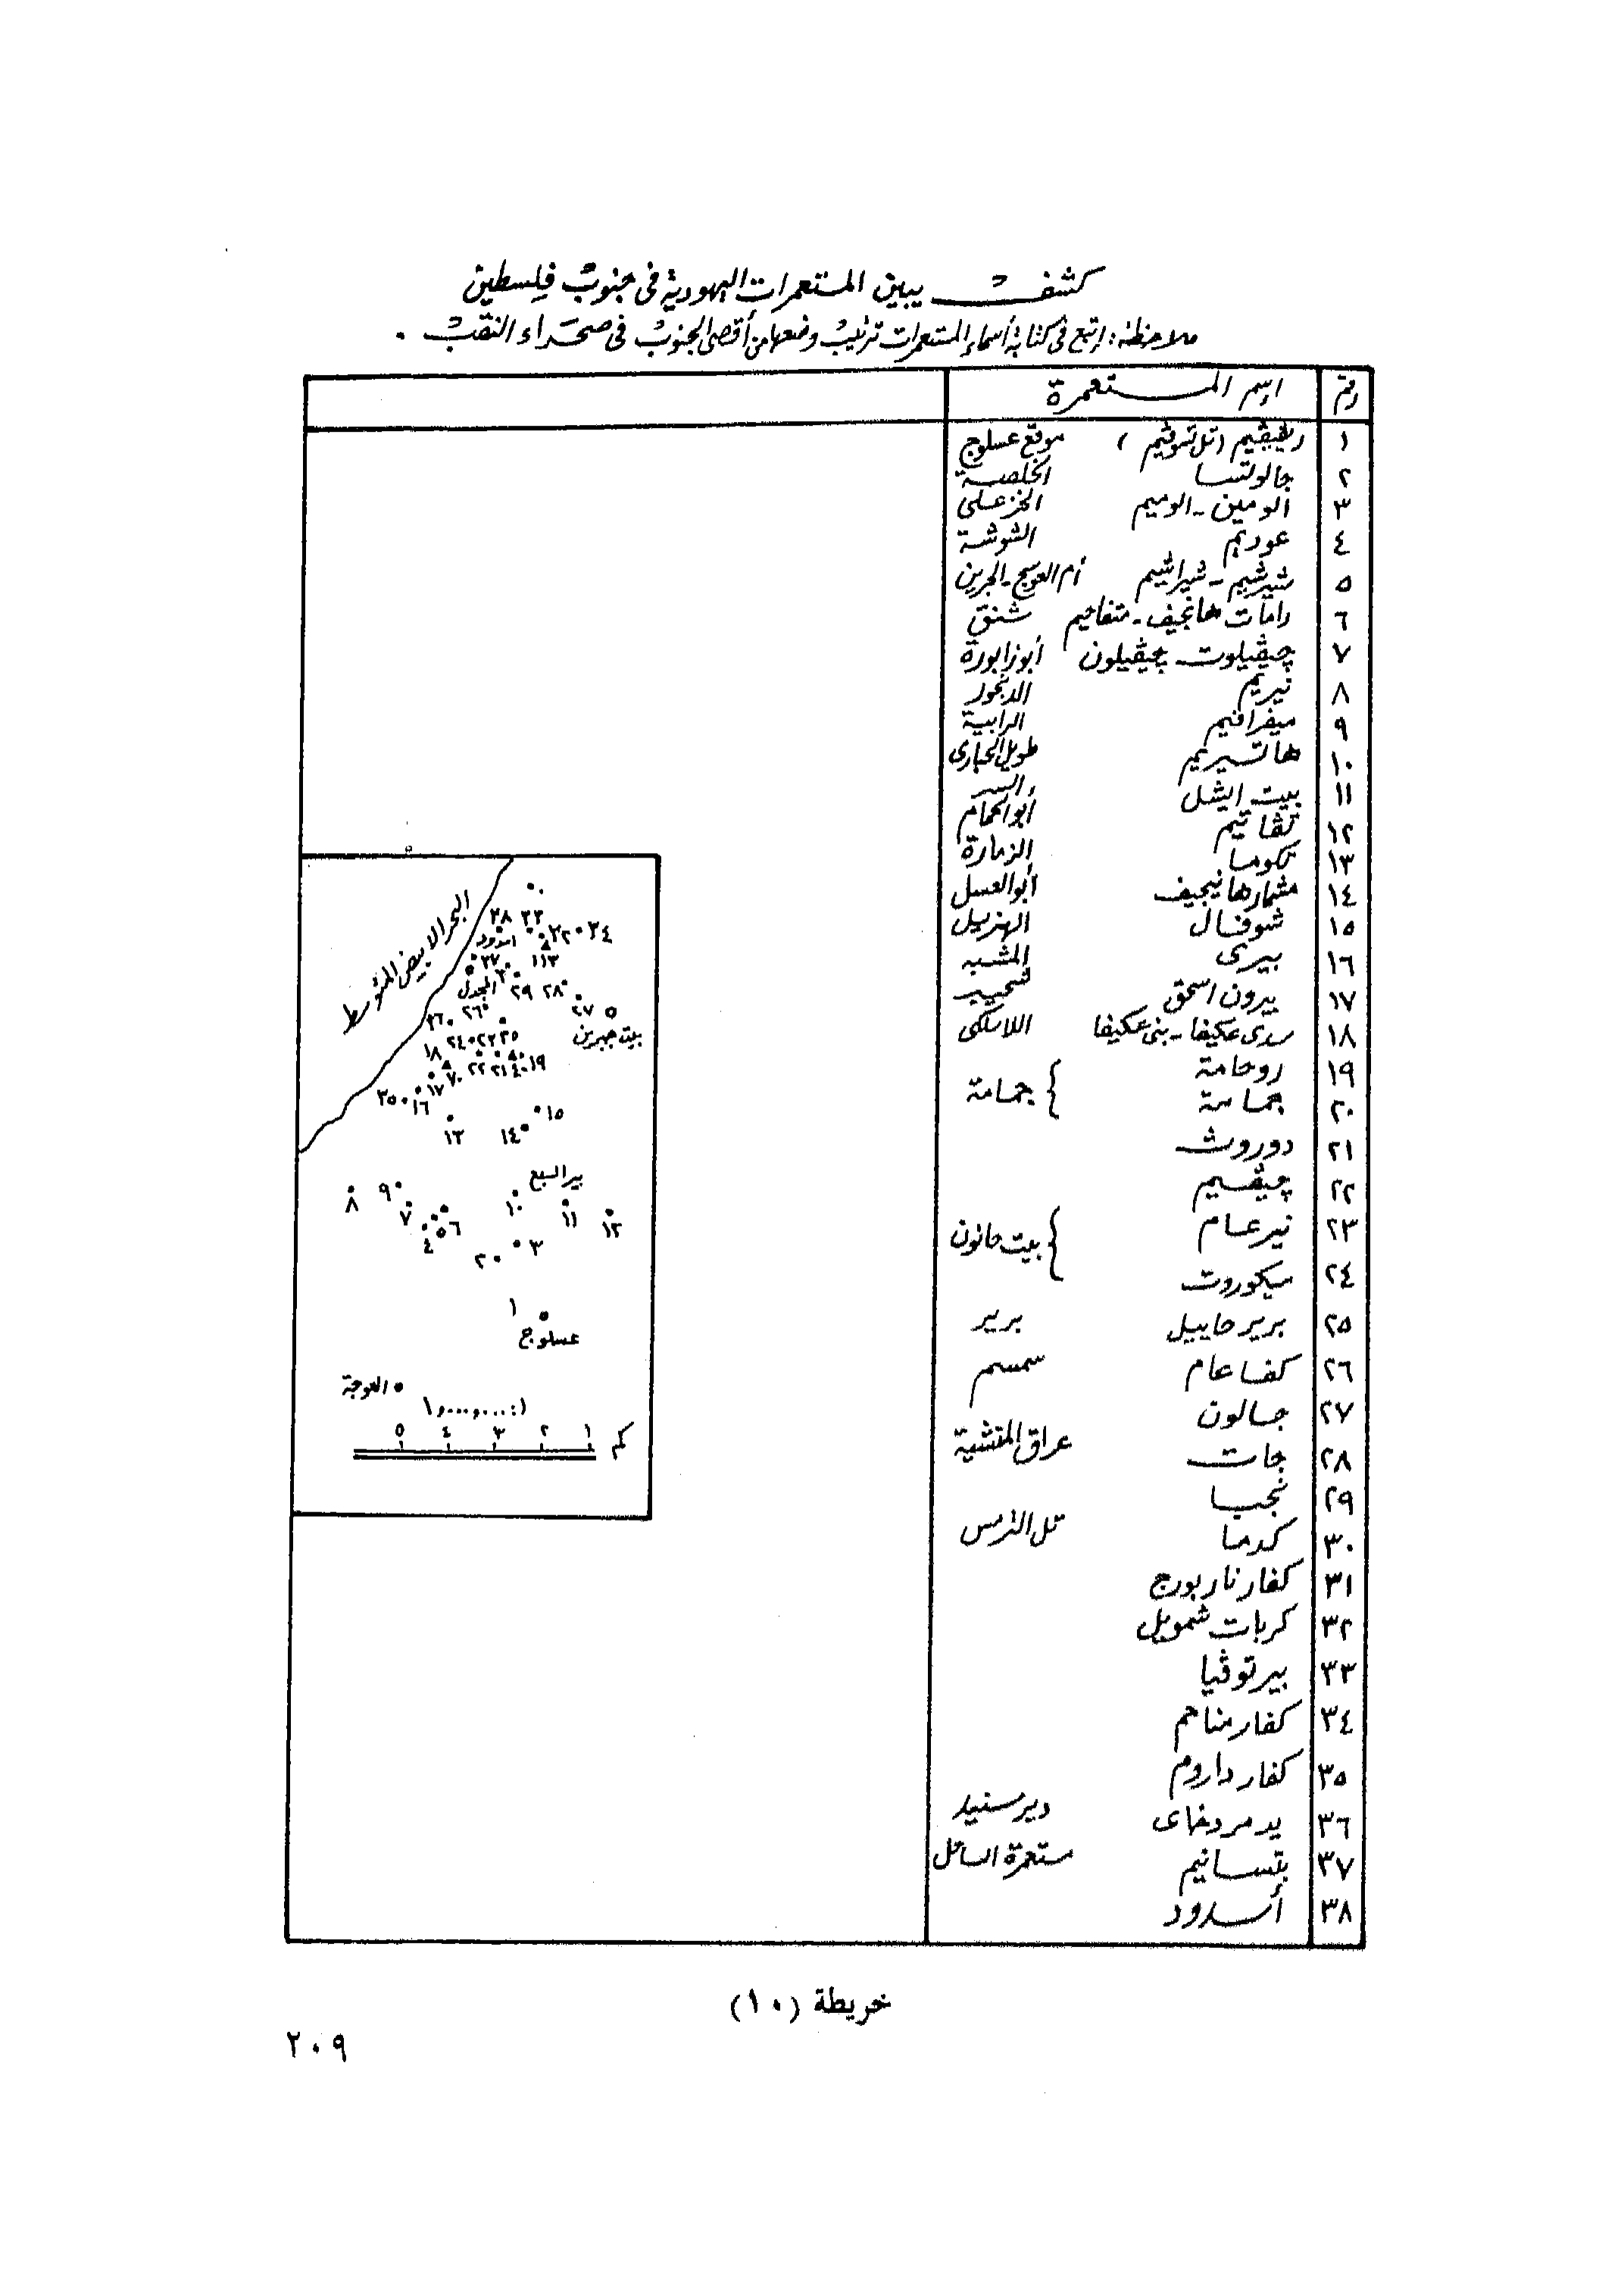 كشف يبين المستعمرات اليهودية فى جنوب فلسطين
ملاحظة: اتبع فى كتابة أسماء المستعمرات ترتيب وضعها من أقصى الجنوب فى صحراء النقب .
رقم اسم المستعمرة
١ ريفيفيم (تل تسوفيم) موقع عسلوج
٢ جالوتسا الخلصة
٣ الومين - الوميم الخزعلى
٤ عوديم الشوشة
٥ شيرشيم - شيراشيم أم العوسج - الجرين
٦ رامات هانجيف - متفاحيم شنق
٧ چيڤيلوت - چيڤيلون أبوزابورة
٨ نيريم الدنجور
٩ ميفرافيم الرابية
١٠ هاتسيريم طويل الحبارى
١١ بيت ايشل السر
١٢ نڤاتيم أبوالحمام
١٣ تكوما الزمارة
١٤ مشمارهانيجيف أبوالعسل
١٥ شوفال الهزيل
١٦ بيرى المشبه
١٧ يرون اسحق شحيبر
١٨ سدى عكيفا - بنى عكيفا اللاسلكى
١٩ روحامة
٢٠ جمامة } جمامة
٢١ دوروث
٢٢ چيڤيم
٢٣ نيرعام
٢٤ ميكوروت } بيت حانون
٢٥ برير حاييل برير
٢٦ كفا عام سمسم
٢٧ جالون
٢٨ جات عراق المنشية
٢٩ نجبا
٣٠ كدما تل الترمس
٣١ كفار ناربورج
٣٢ كريات شمويل
٣٣ بيرتوڤيا
٣٤ كفار مناحم
٣٥ كفار داروم
٣٦ يد مردخاى دير سنيد
٣٧ نتسانيم مستعمرة الساحل
٣٨ أسدود
البحر الابيض المتوسط
٣٨ ٣٣
٣٢ ٣٤
اسدود
٣٧
المجدل
٢٩ ٢٨
٢٧
بيت جبرين
٣٦ ٢٦
٢٤ ٢٣ ٢٥
١٨
٢٢ ٢١ ١٩
١٧
٣٥ ١٦
١٣ ١٤ ١٥
بير السبع
٨ ٩ ٧ ١٠ ١١ ١٢
٤ ٥ ٦
٢ ٣
١
عسلوج
العوجة
١:١,٠٠٠,٠٠٠
٥ ٤ ٣ ٢ ١ كم
خريطة (١٠)
٢٠٩